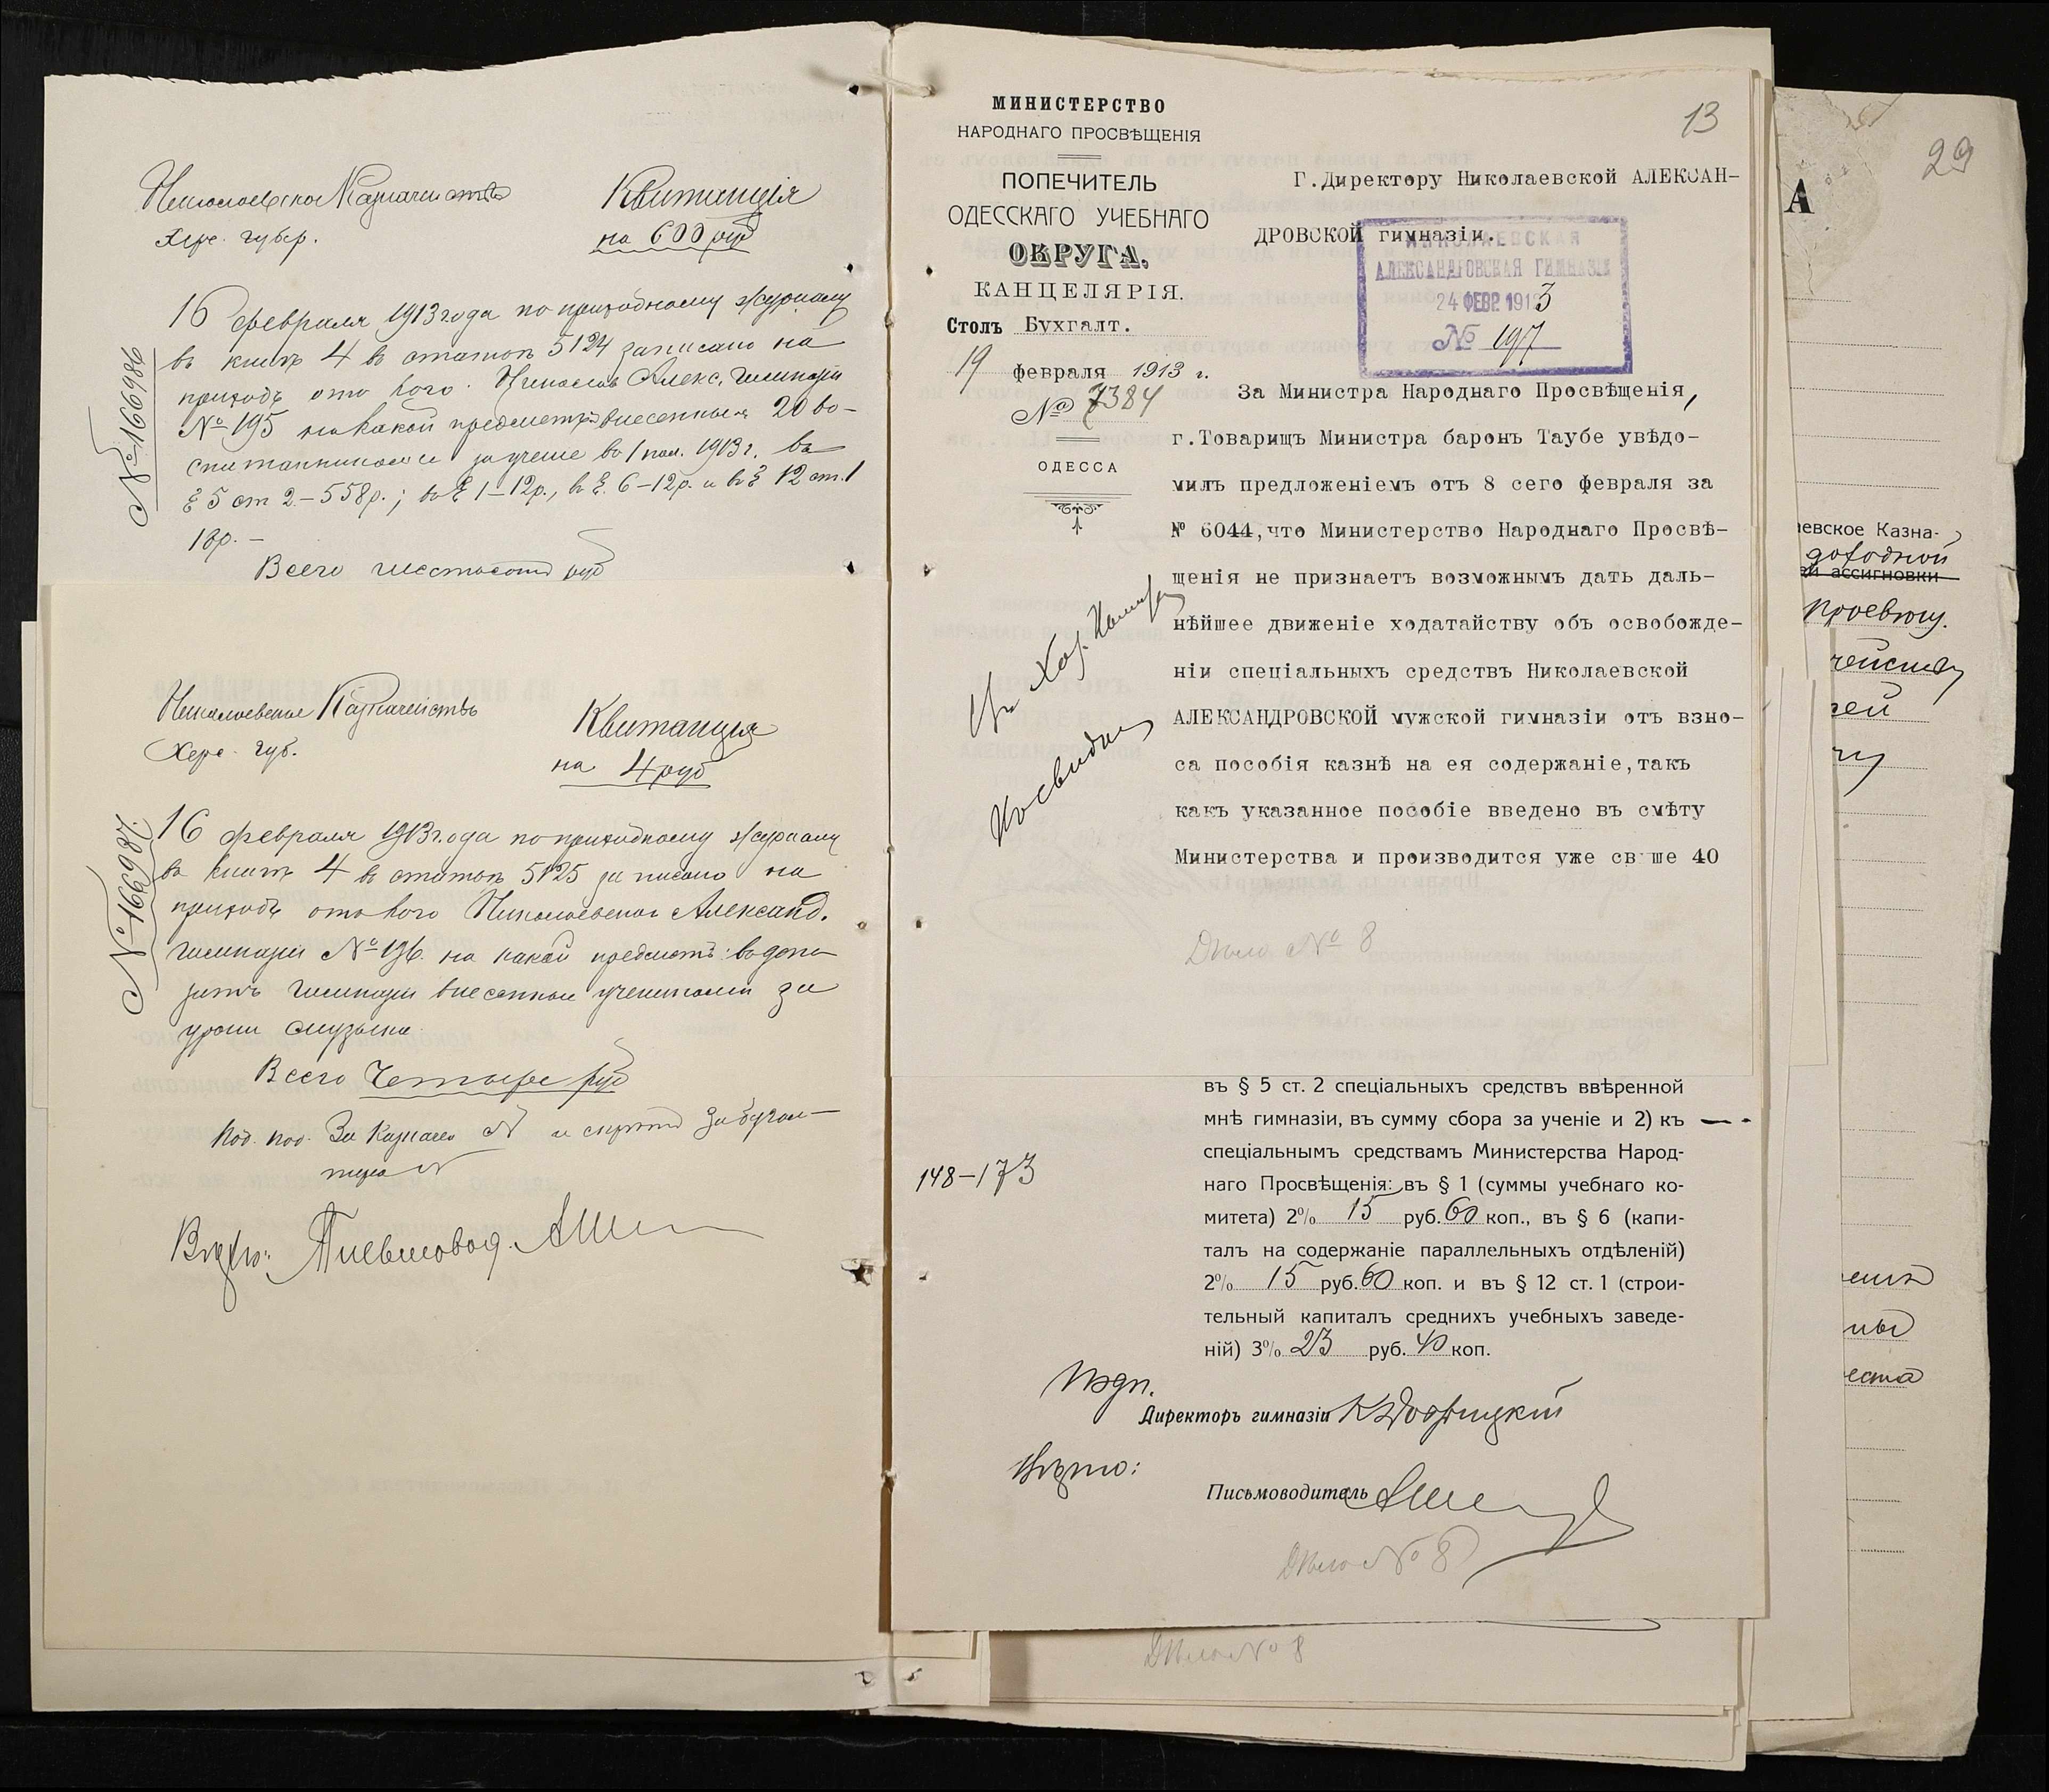 Николаевское Казначейство
Херс. губер.
Квитанція
на 600 руб
16 февраля 1913 года по приходному журналу
въ книгѣ 4 въ статьѣ 5124 записано на
приходъ отъ кого: Николаев Алекс. Гимназіи
№ 195 на какой предметъ: внесенныя 20 во-
спитанниками за ученіе во 1 пол. 1913 г. въ
§ 5 ст 2 – 558 р.; въ § 1 – 12 р., въ §. 6 – 12 р. и въ § 12 ст. 1
18 р. –
Всего шестьсотъ руб
№ 166986
Николаевское Казначейство
Херс. губ.
Квитанція
на 4 руб
16 февраля 1913 года по приходному журналу
въ книгѣ 4 въ статьѣ 5125 записано на
приходъ отъ кого Николаевской Александ.
гимназіи № 196. на какой предметъ: въ депо
зитъ гимназіи внесенные учениками за
уроки музыки.
Всего Четыре руб
№ 166987.
Под. под. За Казначея N и скрѣпа За бухгал-
тера N
Вѣрно: Письмовод.
МИНИСТЕРСТВО
НАРОДНАГО ПРОСВѢЩЕНІЯ
ПОПЕЧИТЕЛЬ
ОДЕССКАГО УЧЕБНАГО
ОКРУГА.
КАНЦЕЛЯРІЯ.
Столъ Бухгалт.
19 февраля 1913 г.
№ 7384
ОДЕССА
13
Г.Директору Николаевской АЛЕКСАН-
ДРОВСКОЙ гимназіи.
НИКОЛАЕВСКАЯ
АЛЕКСАНДРОВСКАЯ ГИМНАЗІЯ
24 ФЕВР. 1913
№ 197
За Министра Народнаго Просвѣщенія,
г.Товарищъ Министра баронъ Таубе увѣдо-
милъ предложеніемъ отъ 8 сего февраля за
№ 6044,что Министерство Народнаго Просвѣ-
щенія не признаетъ возможнымъ дать даль-
нѣйшее движеніе ходатайству объ освобожде-
ніи спеціальныхъ средствъ Николаевской
АЛЕКСАНДРОВСКОЙ мужской гимназіи отъ взно-
са пособія казнѣ на ея содержаніе,такъ
какъ указанное пособіе введено въ смѣту
Министерства и производится уже св ше 40
Дѣло № 8
въ § 5 ст. 2 спеціальныхъ средствъ ввѣренной
мнѣ гимназіи, въ сумму сбора за ученіе и 2) къ
спеціальнымъ средствамъ Министерства Народ-
наго Просвѣщенія: въ § 1 (суммы учебнаго ко-
митета) 2% 15 руб. 60 коп., въ § 6 (капи-
талъ на содержаніе параллельныхъ отдѣленій)
2% 15 руб. 60 коп. и въ § 12 ст. 1 (строи-
тельный капиталъ среднихъ учебныхъ заведе-
ній) 3% 23 руб. 40 коп.
148–173
Подп.
Директоръ гимназіи
Вѣрно:
Письмоводитель
Дѣло № 8
Дѣло № 8
29
А
аевское Казна-
доходной
ой ассигновки